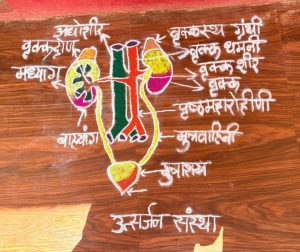 अधोशीर
वृक्कद्रोण
मध्यांग
बाह्यांग
वृक्कस्थ ग्रंथी
वृक्क धमनी
वृक्क शीर
वृक्क
पृष्ठमहारोहिणी
मुत्रवाहिनी
मुत्राशय
उत्सर्जन संस्था